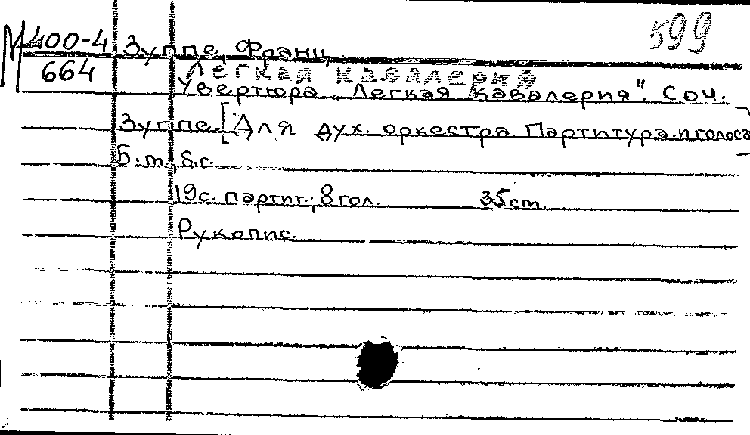 599
М 400-4 Зуппе, Франц
664 Легкая кавалерия
Увертюра „Легкая кавалерия". Соч.
Зуппе. [Для дух. оркестра. Партитура и голоса]
Б.м., б.г.
19с. партит., 8 гол. 35 cm.
Рукопис.